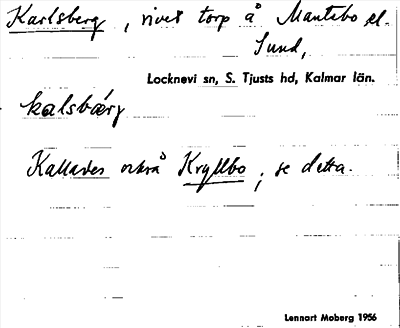 Karlsberg, rivet torp å Mantebo el.
Sund,
Locknevi sn, S. Tjusts hd, Kalmar län.
kalsbærg
Kallades också Kryllbo; se detta.
Lennart Moberg 1956